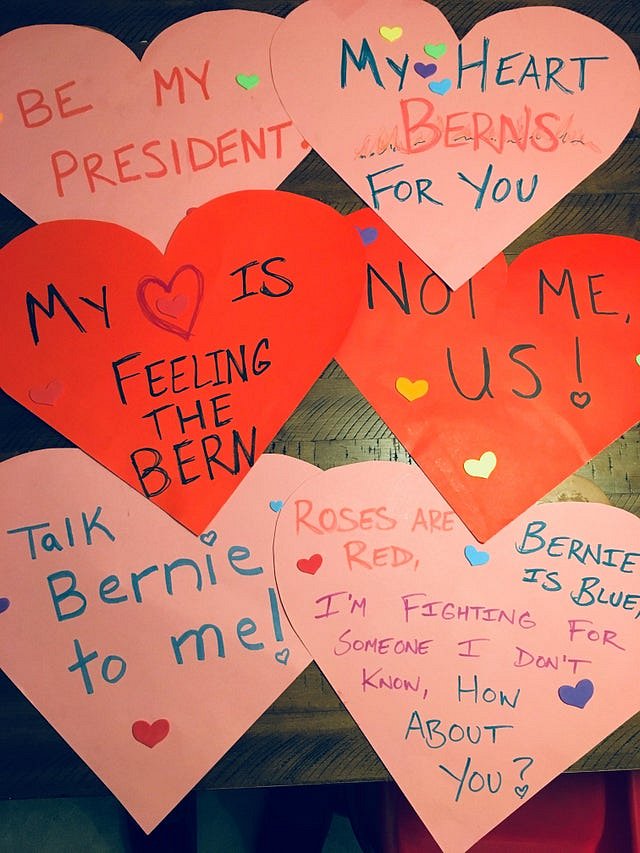 BE MY
PRESIDENT.
MY HEART
BERNS
FOR YOU
MY IS
FEELING
THE
BERN
NOT ME,
US!
Talk
Bernie
to me!
ROSES ARE
RED,
BERNIE
IS BLUE,
I'M FIGHTING FOR
SOMEONE I DON'T
KNOW, HOW
ABOUT
YOU?